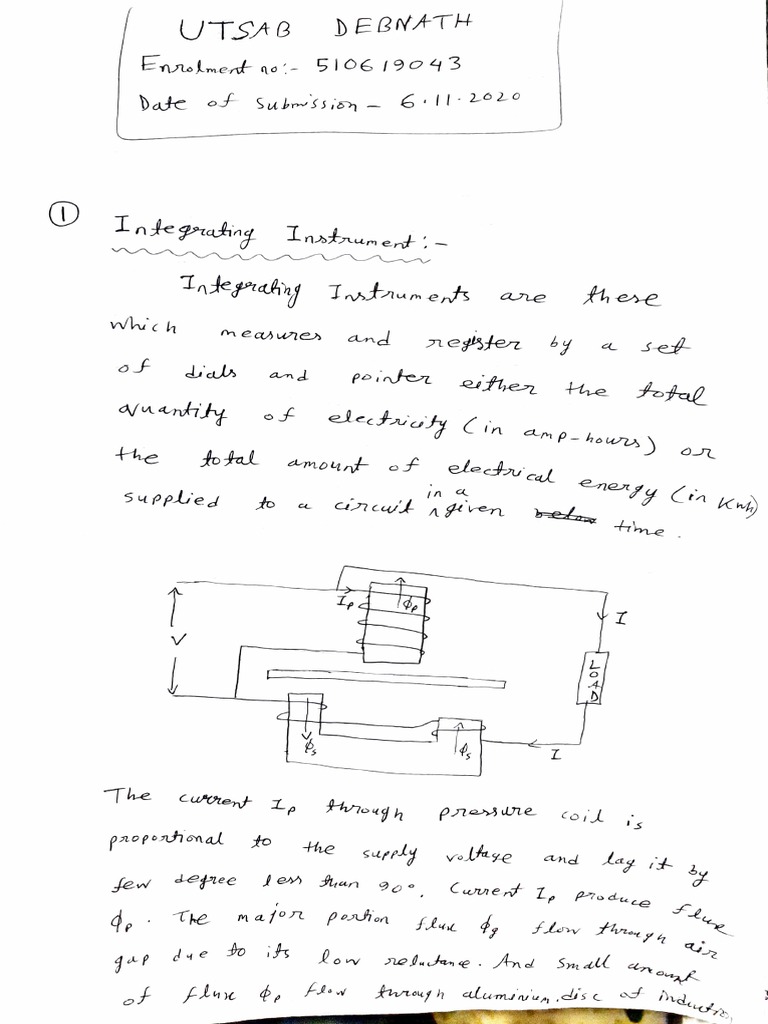 UTSAB DEBNATH
Enrolment no:- 510619043
Date of Submission - 6.11.2020
① Integrating Instrument:-
Integrating Instruments are these
which measures and register by a set
of dials and pointer either the total
quantity of electricity (in amp-hours) or
the total amount of electrical energy (in Kwh)
supplied to a circuit in a given time.
Ip
ϕp
I
V
LOAD
ϕs
ϕs
I
The current Ip through pressure coil is
proportional to the supply voltage and lag it by
few degree less than 90°. Current Ip produce flux
ϕp. The major portion flux ϕg flow through air
gap due to its low reluctance. And small amount
of flux ϕp flow through aluminium disc of induction